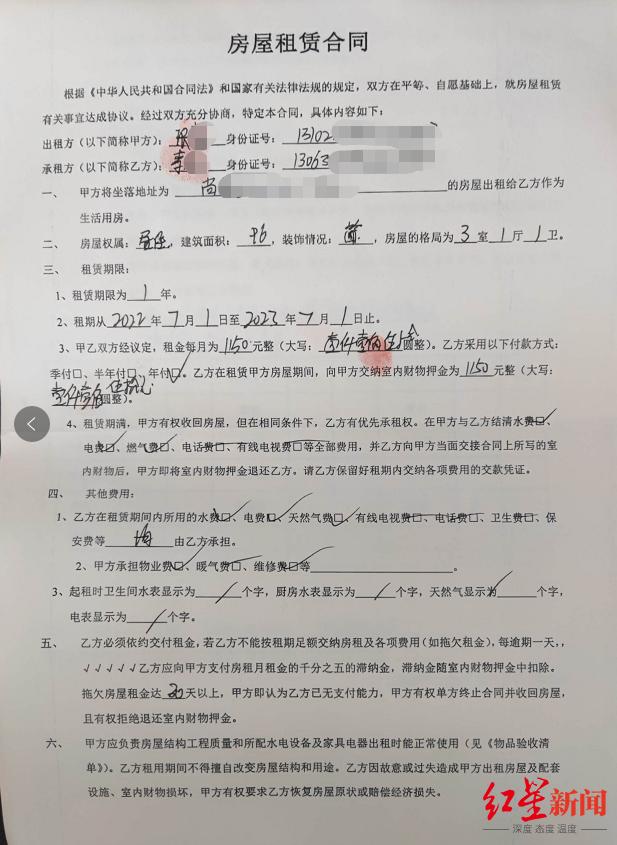 房屋租赁合同
根据《中华人民共和国合同法》和国家有关法律法规的规定，双方在平等、自愿基础上，就房屋租赁
有关事宜达成协议。经过双方充分协商，特定本合同，具体内容如下：
出租方（以下简称甲方）： 身份证号：13102
承租方（以下简称乙方）：李 身份证号：13063
一、 甲方将坐落地址为 尚 的房屋出租给乙方作为
生活用房。
二、 房屋权属： ，建筑面积： ，装饰情况：简，房屋的格局为3室1厅1卫。
三、 租赁期限：
1、租赁期限为1年。
2、租期从2022年7月1日至2023年7月1日止。
3、甲乙双方经议定，租金每月为1150元整（大写：壹仟壹佰伍拾圆整）。乙方采用以下付款方式：
季付口、半年付口、年付口。乙方在租赁甲方房屋期间，向甲方交纳室内财物押金为1150元整（大写：
壹仟壹佰伍拾元圆整）。
4、租赁期满，甲方有权收回房屋，但在相同条件下，乙方有优先承租权。在甲方与乙方结清水费口、
电费口、燃气费口、电话费口、有线电视费口等全部费用，并乙方向甲方当面交接合同上所写的室
内财物后，甲方即将室内财物押金退还乙方。请乙方保留好租期内交纳各项费用的交款凭证。
四、 其他费用：
1、乙方在租赁期间内所用的水费口、电费口、天然气费口、有线电视费口、电话费口、卫生费口、保
安费等 均 由乙方承担。
2、甲方承担物业费口、暖气费口、维修费口等 。
3、起租时卫生间水表显示为 / 个字，厨房水表显示为 / 个字，天然气显示为 / 个字，
电表显示为 / 个字。
五、 乙方必须依约交付租金，若乙方不能按租期足额交纳房租及各项费用（如拖欠租金），每逾期一天，，
√√√√√乙方应向甲方支付房租月租金的千分之五的滞纳金，滞纳金随室内财物押金中扣除。
拖欠房屋租金达 天以上，甲方即认为乙方已无支付能力，甲方有权单方终止合同并收回房屋，
且有权拒绝退还室内财物押金。
六、 甲方应负责房屋结构工程质量和所配水电设备及家具电器出租时能正常使用（见《物品验收清
单》）。乙方租用期间不得擅自改变房屋结构和用途。乙方因故意或过失造成甲方出租房屋及配套
设施、室内财物损坏，甲方有权要求乙方恢复房屋原状或赔偿经济损失。
红星新闻
深度 态度 温度